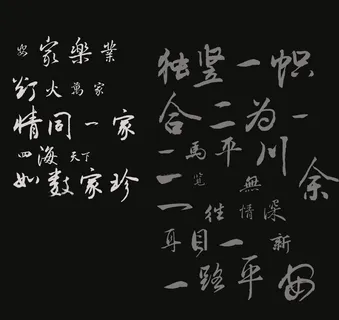 安家樂業
灯火萬家
情同一家
四海天下
如数家珍
独竖一帜
合二为一
一馬平川
一览無余
一往情深
耳目一新
一路平安